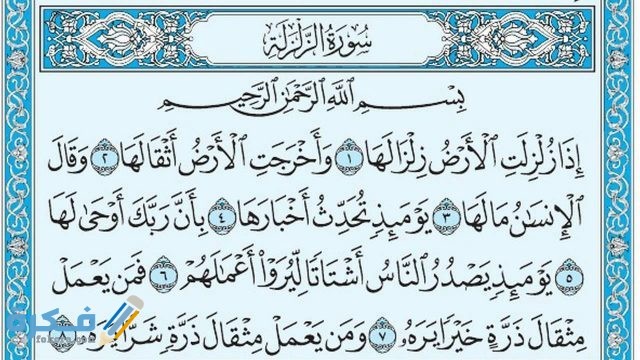 سُورَةُ الزَّلْزَلَةِ
بِسْمِ اللَّهِ الرَّحْمَٰنِ الرَّحِيمِ
إِذَا زُلْزِلَتِ الْأَرْضُ زِلْزَالَهَا ١ وَأَخْرَجَتِ الْأَرْضُ أَثْقَالَهَا ٢ وَقَالَ
الْإِنسَانُ مَا لَهَا ٣ يَوْمَئِذٍ تُحَدِّثُ أَخْبَارَهَا ٤ بِأَنَّ رَبَّكَ أَوْحَىٰ لَهَا
٥ يَوْمَئِذٍ يَصْدُرُ النَّاسُ أَشْتَاتًا لِّيُرَوْا أَعْمَالَهُمْ ٦ فَمَن يَعْمَلْ
مِثْقَالَ ذَرَّةٍ خَيْرًا يَرَهُ ٧ وَمَن يَعْمَلْ مِثْقَالَ ذَرَّةٍ شَرًّا يَرَهُ
فكرة